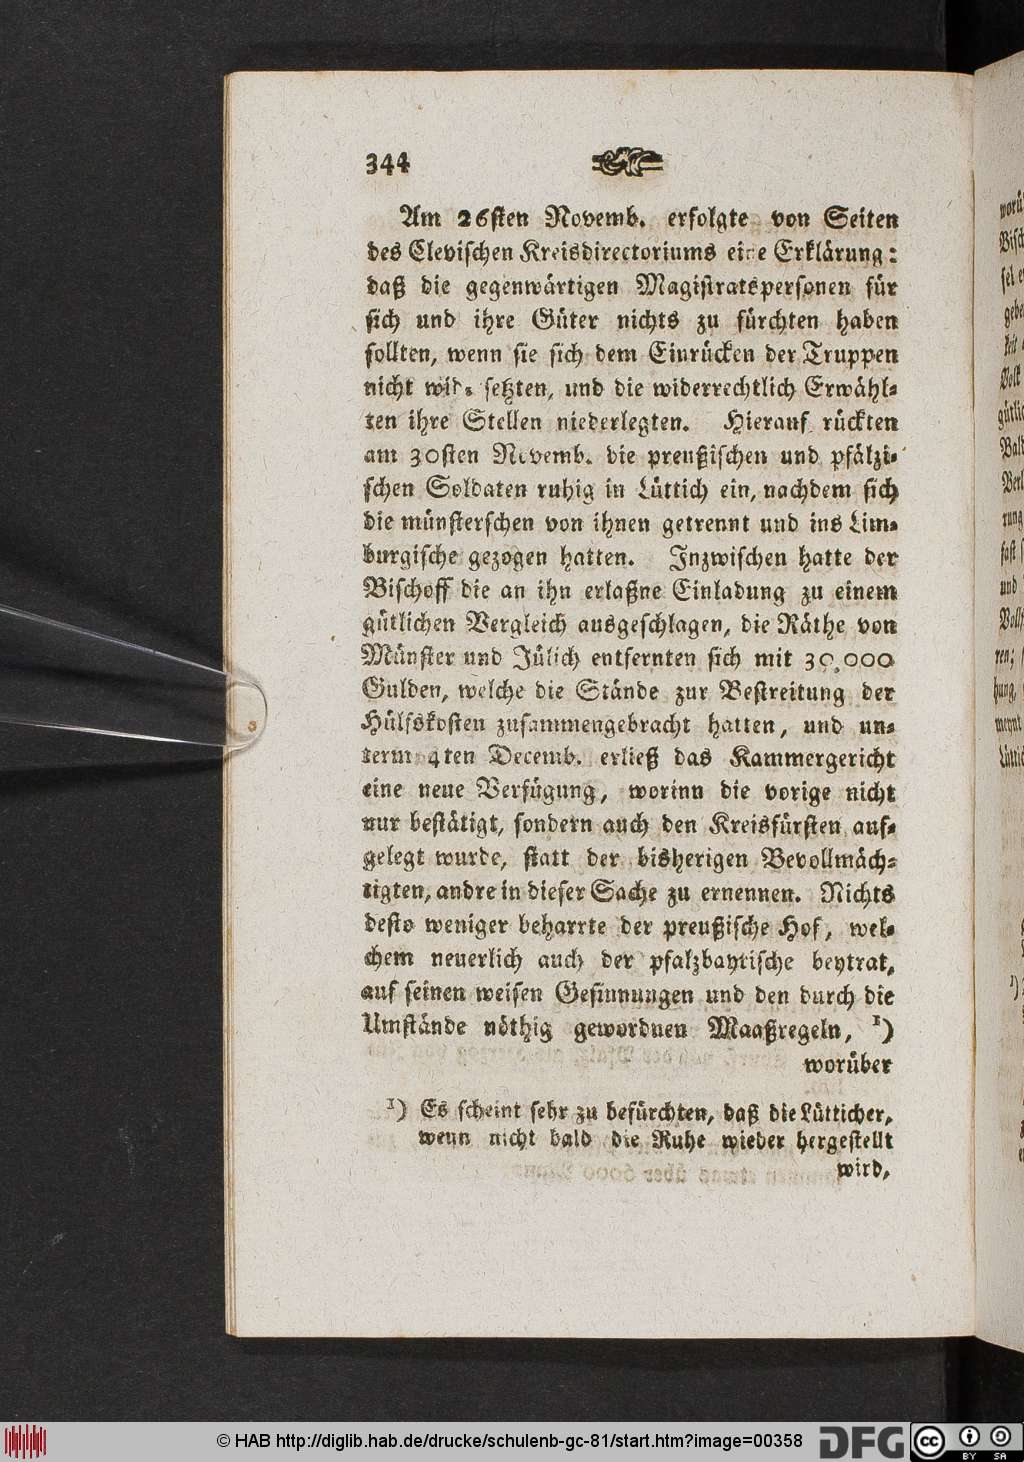 344
Am 26sten Novemb. erfolgte von Seiten
des Clevischen Kreisdirectoriums eine Erklärung:
daß die gegenwärtigen Magistratspersonen für
sich und ihre Güter nichts zu fürchten haben
sollten, wenn sie sich dem Einrücken der Truppen
nicht wid. setzten, und die widerrechtlich Erwähl-
ten ihre Stellen niederlegten. Hierauf rückten
am 30sten Novemb. die preußischen und pfälzi-
schen Soldaten ruhig in Lüttich ein, nachdem sich
die münsterschen von ihnen getrennt und ins Lim-
burgische gezogen hatten. Inzwischen hatte der
Bischoff die an ihn erlaßne Einladung zu einem
gütlichen Vergleich ausgeschlagen, die Räthe von
Münster und Jülich entfernten sich mit 30,000
Gulden, welche die Stände zur Bestreitung der
Hülfskosten zusammengebracht hatten, und un-
term 4ten Decemb. erließ das Kammergericht
eine neue Verfügung, worinn die vorige nicht
nur bestätigt, sondern auch den Kreisfürsten auf-
gelegt wurde, statt der bisherigen Bevollmäch-
tigten, andre in dieser Sache zu ernennen. Nichts
desto weniger beharrte der preußische Hof, wel-
chem neuerlich auch der pfalzbayrische beytrat,
auf seinen weisen Gesinnungen und den durch die
Umstände nöthig gewordnen Maaßregeln, 1)
worüber
1) Es scheint sehr zu befürchten, daß die Lütticher,
wenn nicht bald die Ruhe wieder hergestellt
wird,
© HAB http://diglib.hab.de/drucke/schulenb-gc-81/start.htm?image=00358
DFG
cc BY SA